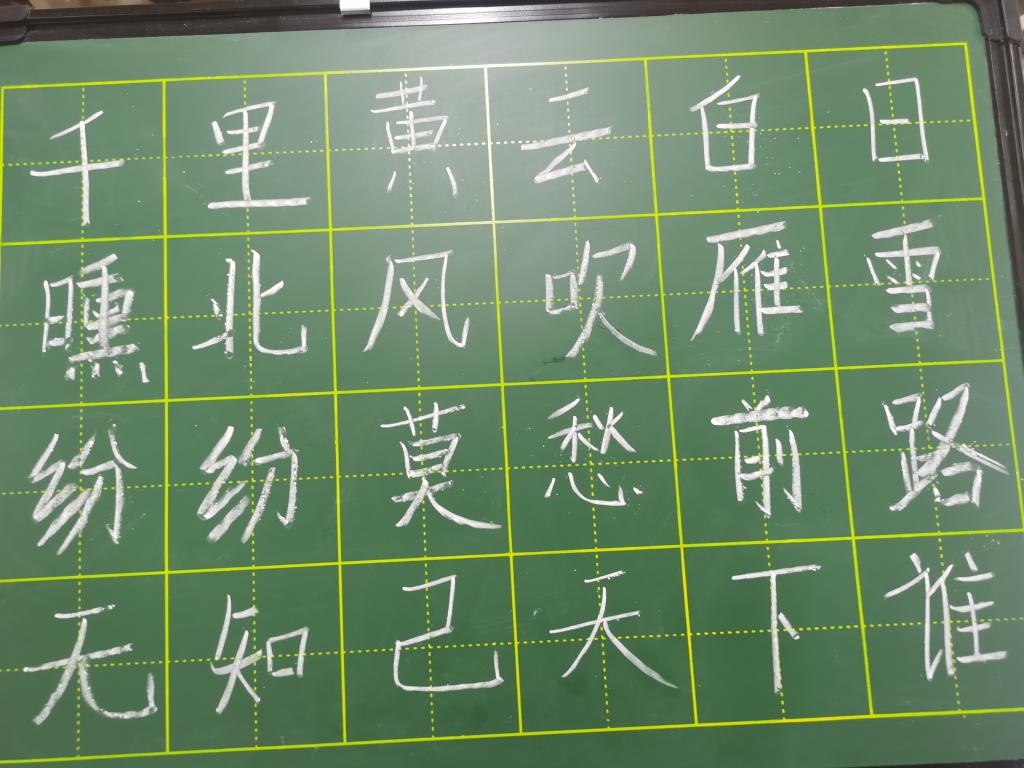 千里黄云白日
曛北风吹雁雪
纷纷莫愁前路
无知己天下谁